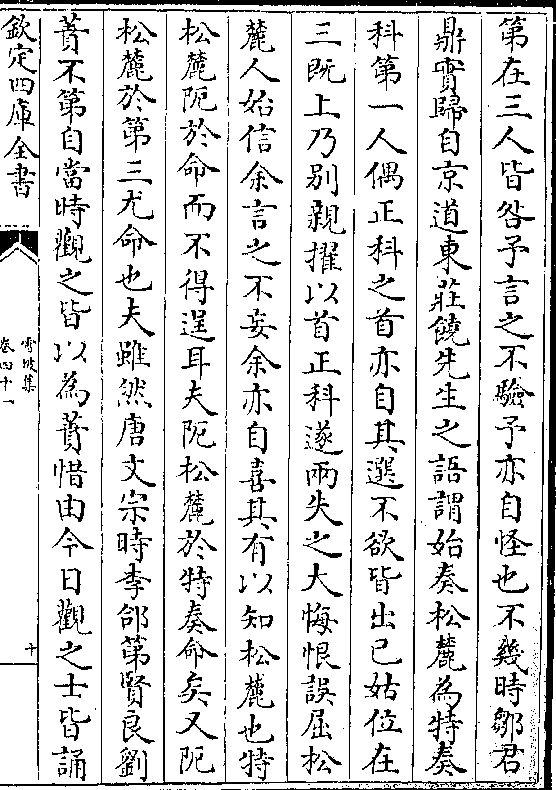 第在三人皆咎予言之不驗予亦自怪也不幾時鄒君
鼎實歸自京道東莊饒先生之語謂始奏松麓為特奏
科第一人偶正科之首亦自其選不欲皆出已姑位在
三既上乃别親擢以首正科遂兩失之大悔恨誤屈松
麓人始信余言之不妄余亦自喜其有以知松麓也特
松麓阨於命而不得逞耳夫阨松麓於特奏命矣又阨
松麓於第三尤命也夫雖然唐文宗時李郃第賢良劉
蕡不第自當時觀之皆以為蕡惜由今日觀之士皆誦
欽定四庫全書
雪坡集
卷四十一
十